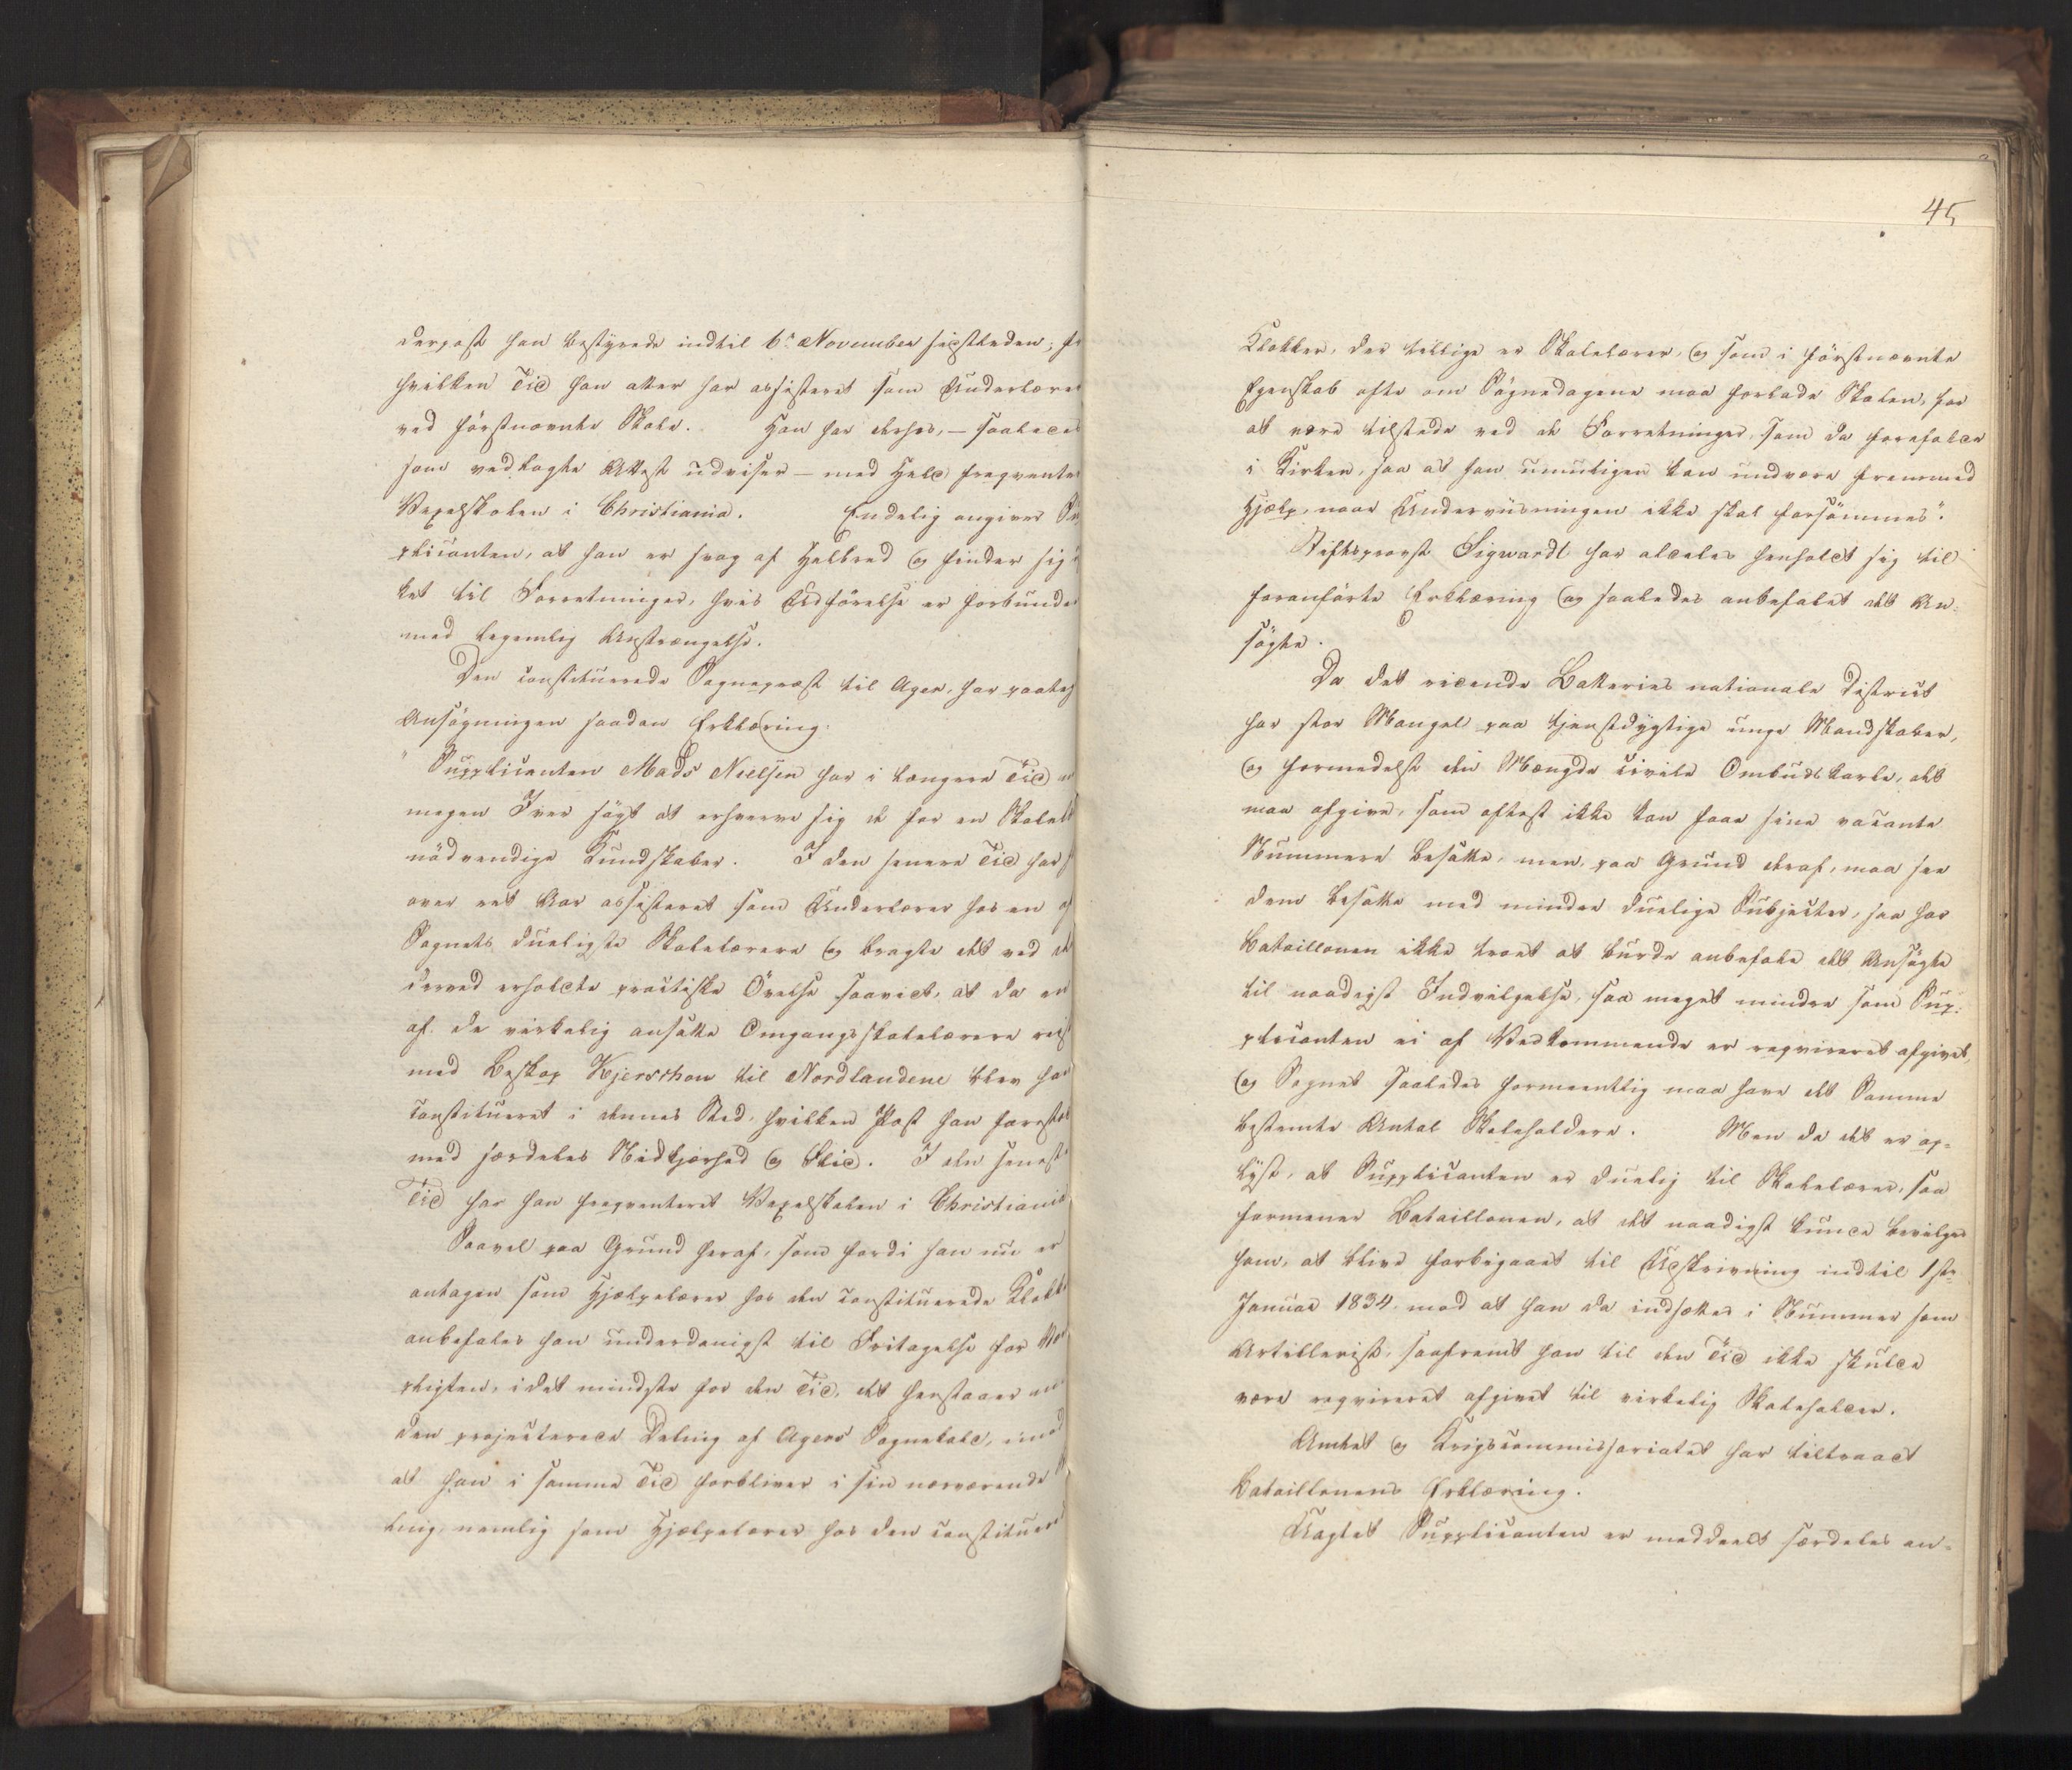 derpost han bestyrede indtil 6te November sidstleden; fr
hvilken Tid han atter har assisteret som Underlærer
ved förstnævnte Skole. Han har derhos, – saaledes
som vedlagte Attest udviser – med Held freqventer
Vexelskolen i Christiania. Endelig angiver Su
plicanten, at han er svag af Helbred og finder sig
ket til Forretninger, hvis Udförelse er forbunden
med legemlig Anstrængelse.
Den constituerede Sognepræst til Ager, har paateg
Ansögningen saadan Erklæring:
"Supplicanten Mads Nielsen har i længere Tid m
megen Iver sögt at erhverve sig de for en Skolel
nödvendige Kundskaber. I den senere Tid har h
over eet Aar assisteret som Underlærer hos en af
Sognets dueligste Skolelærere og bragte det ved d
derved erholdte practiske Övelse saavidt, at da en
af de virkelig ansatte Omgangsskolelærere reis
med Biskop Kjerschow til Nordlandene blev han
constitueret i dennes Sted, hvilken Post han forestod
med særdeles Nidkjærhed og Flid. I den seneste
Tid har han freqventeret Vexelskolen i Christiania
Saavel paa Grund heraf, som fordi han nu er
antagen som Hjælpelærer hos den constituerede Klokk
anbefales han underdanigst til Fritagelse for Vær
pligten, i det mindste for den Tid, det henstaaer m
den projecterede Deling af Agers Sognekald, imod
at han i samme Tid forbliver i sin nærværende
ling, nemlig som Hjælpelærer hos den constituered
45
Klokker, der tillige er Skolelærer, og som i förstnævnte
Egenskab ofte om Sögnedagene maa forlade Skolen, for
at være tilstede ved de Forretninger, som da forefalde
i Kirken, saa at han umuligen kan undvære fremmed
Hjælp, naar Underviisningen ikke skal forsömmes".
Stiftsprovst Sigwardt har aldeles henholdt sig til
foranförte Erklæring og saaledes anbefalet det An-
sögte.
Da det ridende Batteries nationale District
har stor Mangel paa tjenstdygtige unge Mandskaber,
og formedelst den Mængde civile Ombudskarle, det
maa afgive, som oftest ikke kan faae sine vacante
Nummere besatte, men, paa Grund deraf, maa see
dem besatte med mindre duelige Subjecter, saa har
Bataillonen ikke troet at burde anbefale det Ansögte
til naadigst Indvilgelse, saa meget mindre som Sup-
plicanten ei af Vedkommende er reqvireret afgivet,
og Sognet saaledes formeentlig maa have det Samme
bestemte Antal Skoleholdere. Men da det er op-
lyst, at Supplicanten er duelig til Skolelærer, saa
formener Bataillonen, at det naadigst kunde bevilges
ham, at blive forbigaaet til Udskrivning indtil 1ste
Januar 1834. mod at han da indsættes i Nummer som
Artillerist, saafremt han til den Tid ikke skulde
være reqvireret afgivet til virkelig Skoleholder.
Amtet og Krigscommissariatet har tiltraadt
Bataillonens Erklæring.
Uagtet Supplicanten er meddeelt særdeles an-